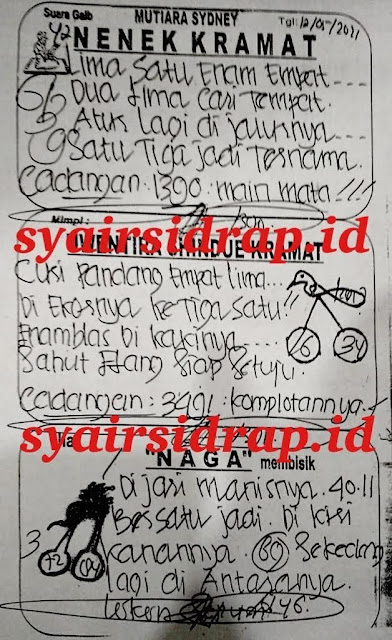 Suara Gaib
MUTIARA SYDNEY
Tgl: 12/05/2021
42
NENEK KRAMAT
Lima Satu Enam Empat....
Dua Lima Cari Tempat.
Atur Lagi di jalurnya....
Satu Tiga jadi Ternama.
Cadangan: 1390: main mata!!!
Mimpi:
1390
syairsidrap.id
UWENTIRA GHINDUE KRAMAT
Curi Pandang Empat Lima...
Di Ekornya ke Tiga Satu!!
Enam blas Di kakinya......
Sahut Elang Siap Setuju.
16 34
Cadangan: 3491: komplotannya.
syairsidrap.id
"NAGA" membisik
Di jari manisnya. 40.11
Bersatu jadi. Di kiri
3
kanannya. 69 Sekedang
72 04
lagi di Antaranya.